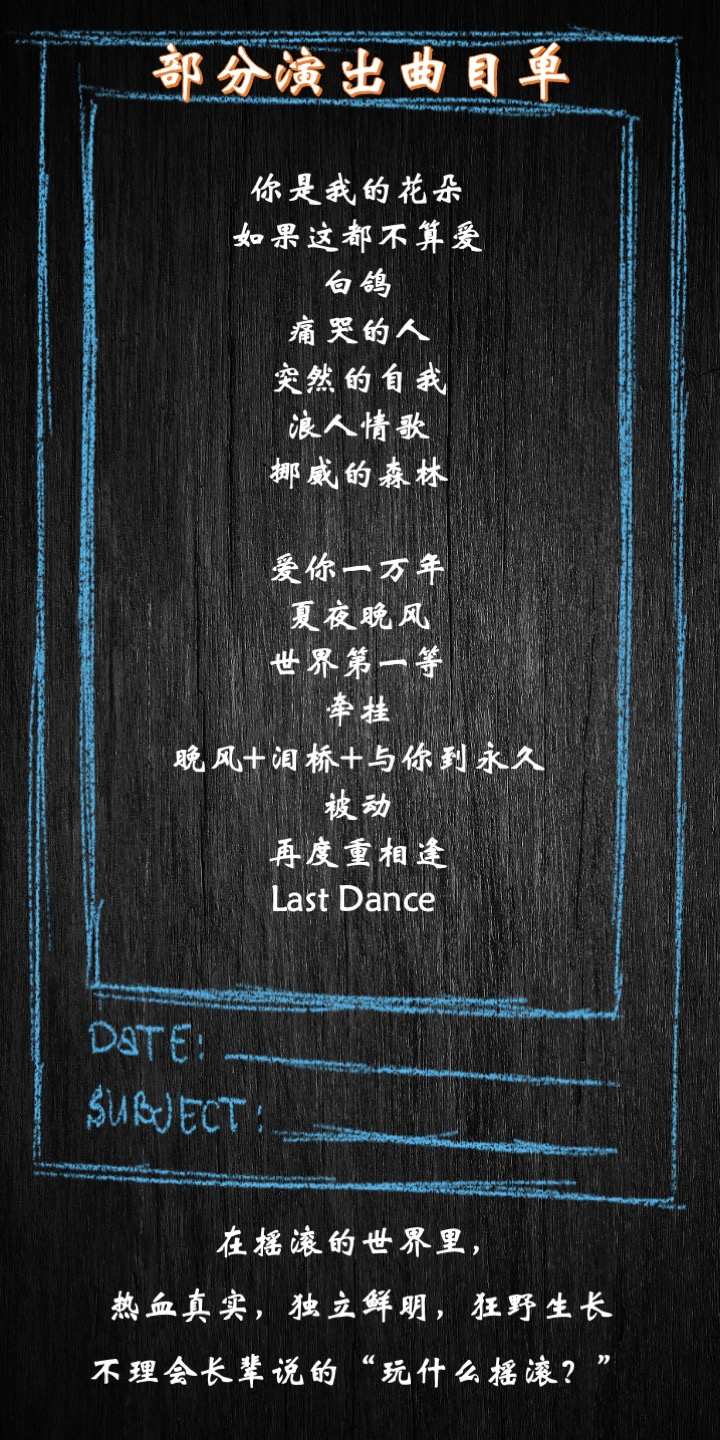 部分演出曲目单
你是我的花朵
如果这都不算爱
白鸽
痛哭的人
突然的自我
浪人情歌
挪威的森林
爱你一万年
夏夜晚风
世界第一等
牵挂
晚风+泪桥+与你到永久
被动
再度重相逢
Last Dance
DATE:
SUBJECT:
在摇滚的世界里，
热血真实，独立鲜明，狂野生长
不理会长辈说的“玩什么摇滚？”